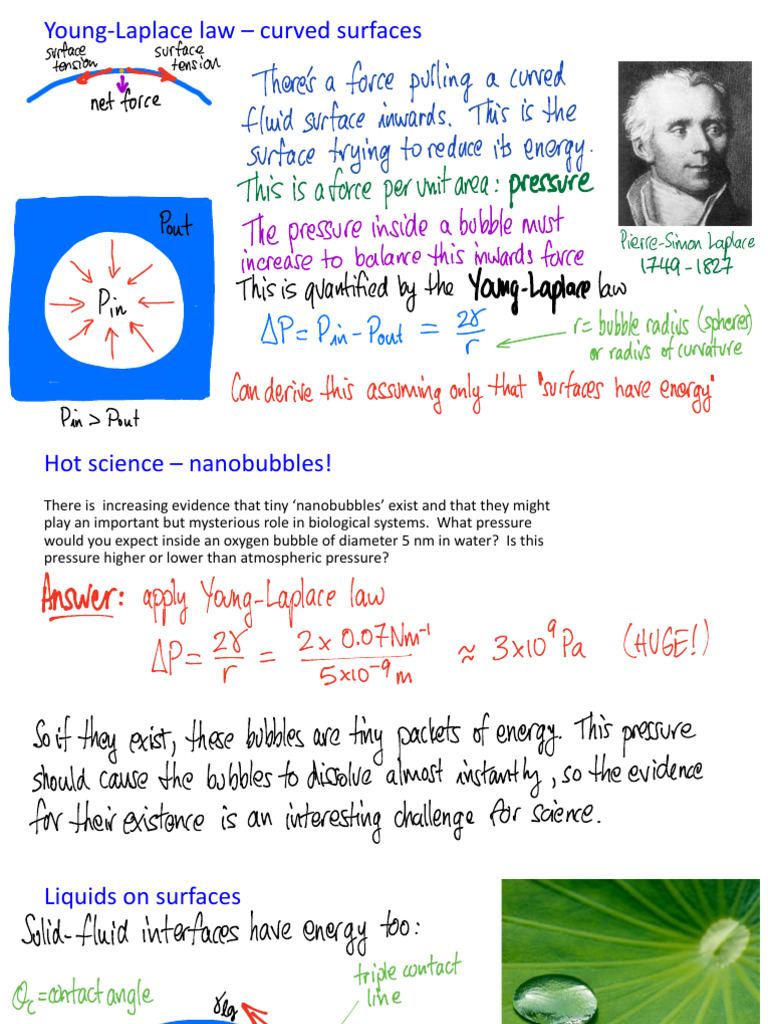 Young-Laplace law – curved surfaces
surface tension
surface tension
net force
There's a force pulling a curved
fluid surface inwards. This is the
surface trying to reduce its energy.
This is a force per unit area: pressure
The pressure inside a bubble must
increase to balance this inwards force
This is quantified by the Young-Laplace law
Pierre-Simon Laplace
1749-1827
Pout
Pin
Pin > Pout
ΔP = Pin - Pout = 2γ/r
r = bubble radius (spheres)
or radius of curvature
Can derive this assuming only that "surfaces have energy"
Hot science – nanobubbles!
There is increasing evidence that tiny ‘nanobubbles’ exist and that they might
play an important but mysterious role in biological systems. What pressure
would you expect inside an oxygen bubble of diameter 5 nm in water? Is this
pressure higher or lower than atmospheric pressure?
Answer: apply Young-Laplace law
ΔP = 2γ/r = 2 x 0.07Nm⁻¹/5x10⁻⁹m ≈ 3x10⁹ Pa (HUGE!)
So if they exist, these bubbles are tiny packets of energy. This pressure
should cause the bubbles to dissolve almost instantly, so the evidence
for their existence is an interesting challenge for science.
Liquids on surfaces
Solid-fluid interfaces have energy too:
θc = contact angle
γlg
triple contact
line